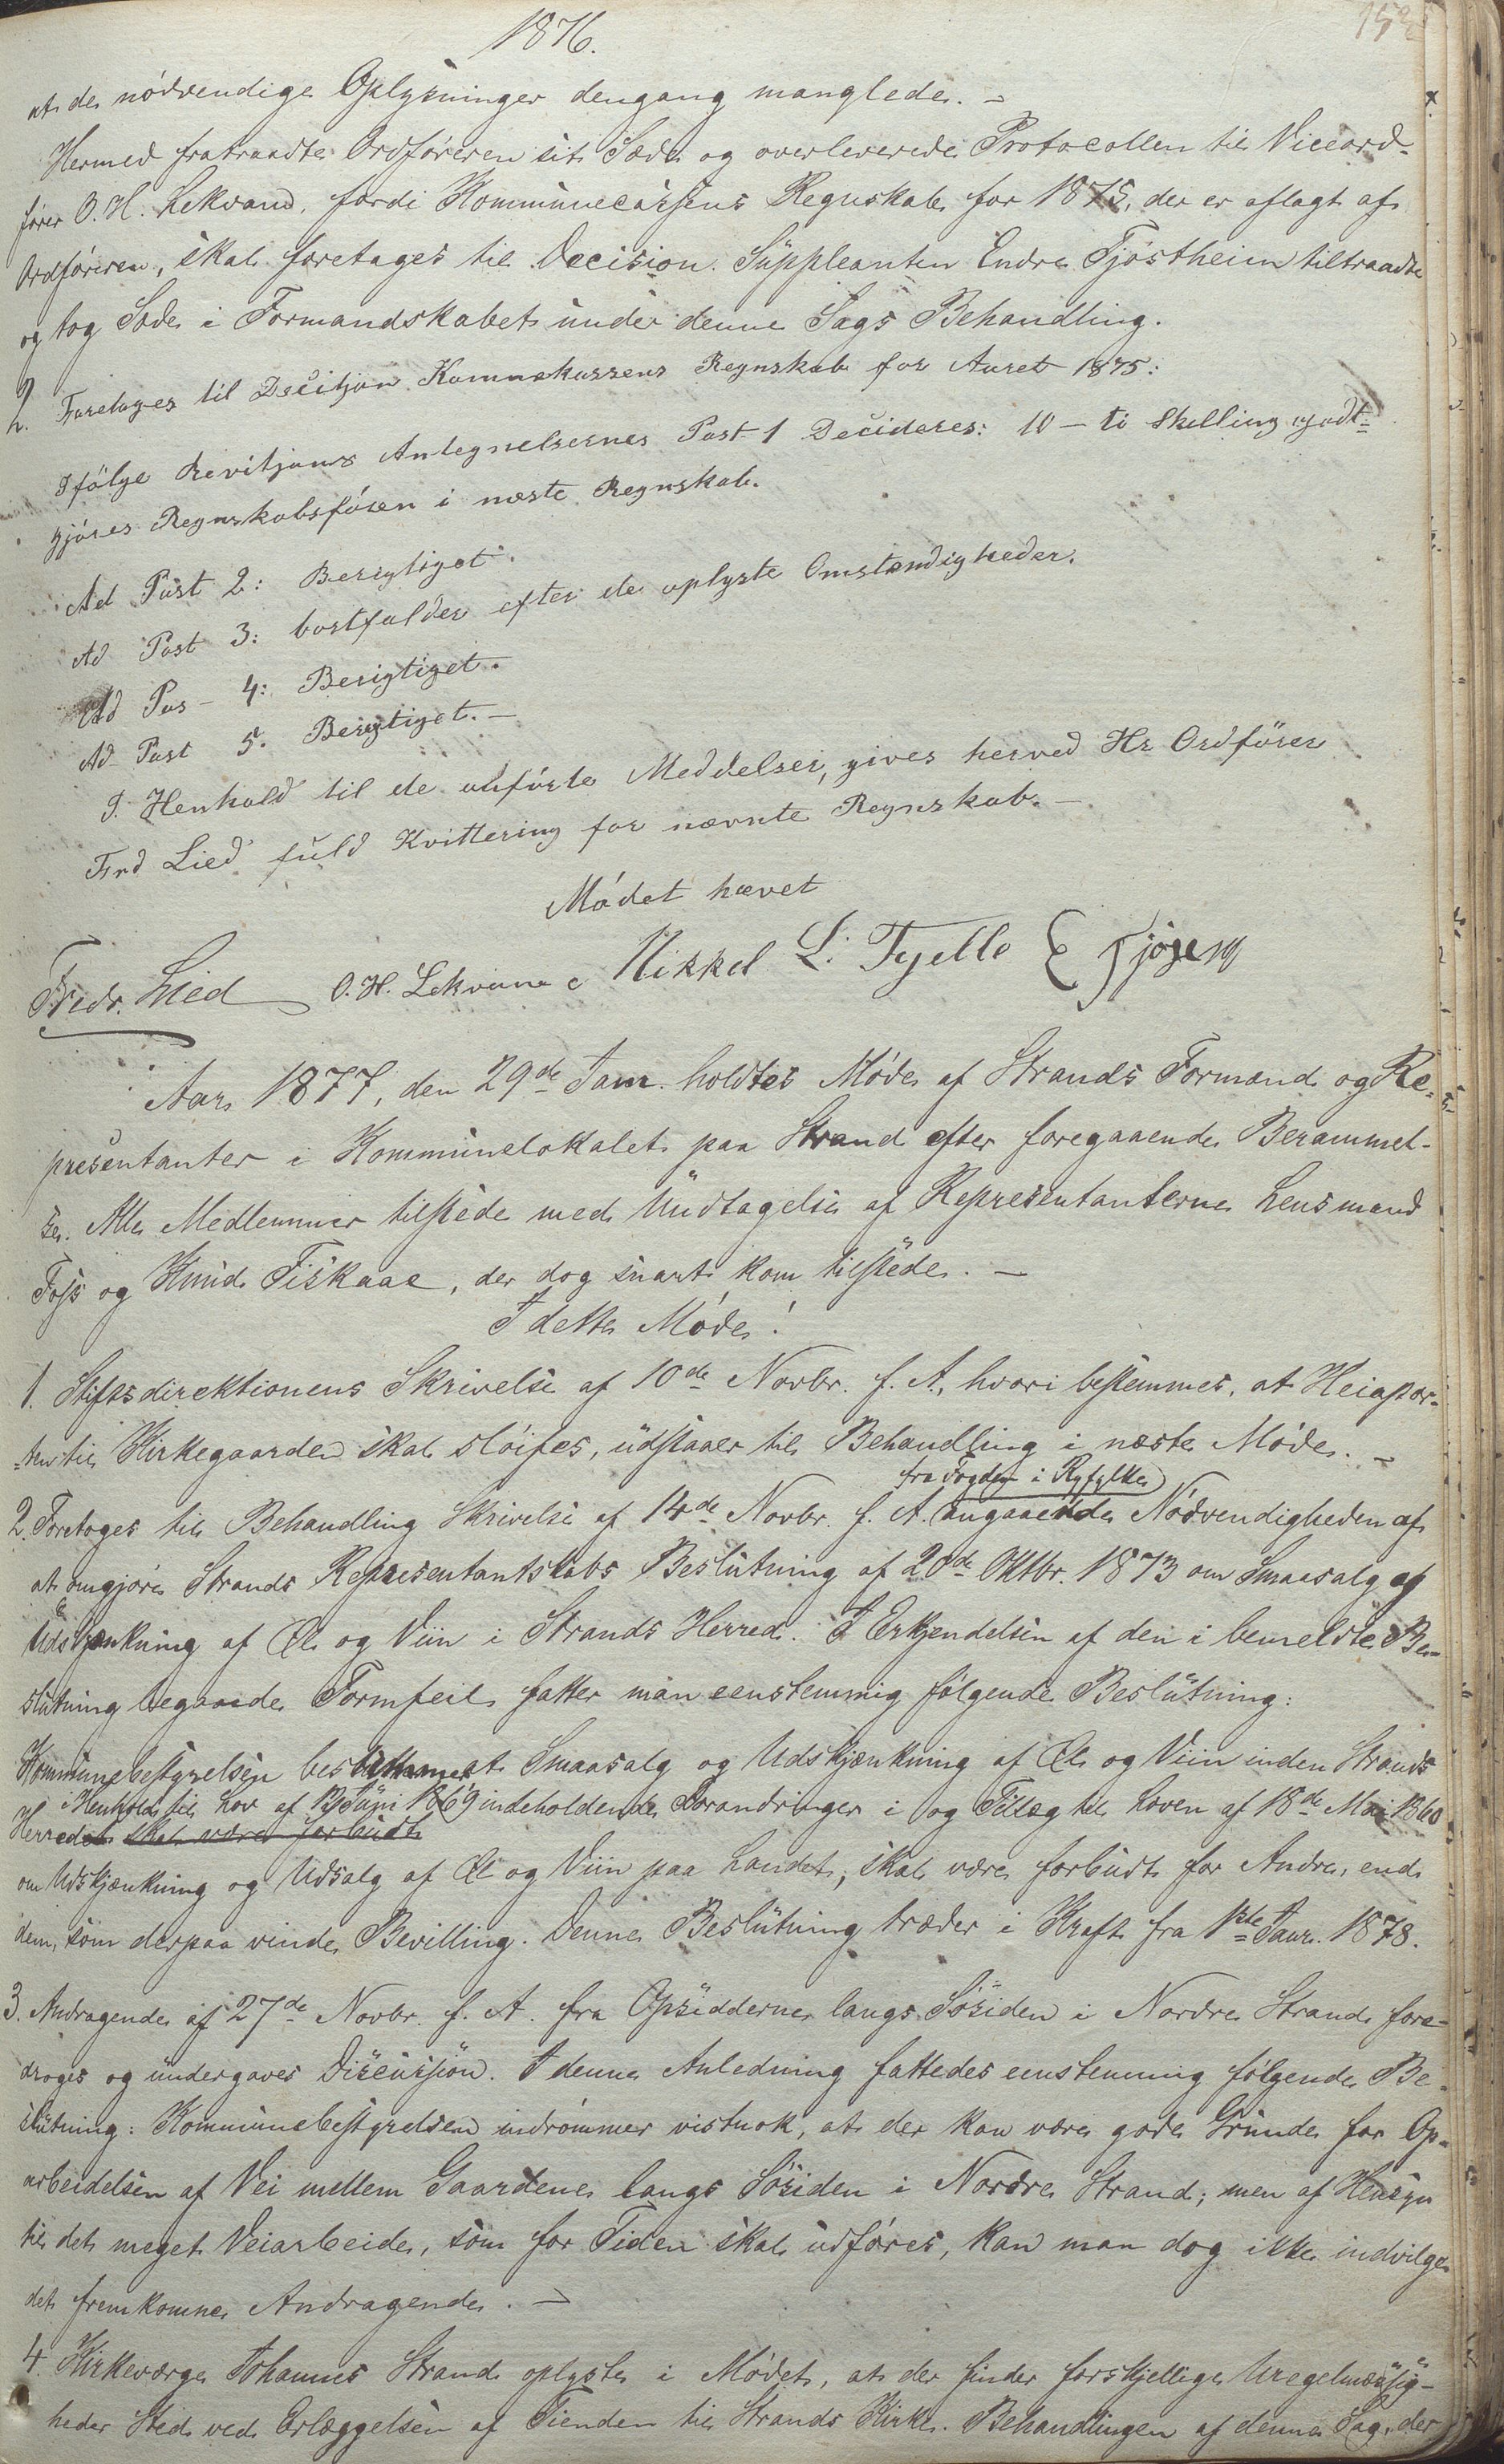 1876.
at de nödvendige Oplysninger dengang manglede. –
Hermed fratraadte Ordföreren sit Sæde og overleverede Protocollen til Viceord-
förer O. H. Lekvam, fordi Kommunecassens Regnskab for 1875, der er aflagt af
Ordföreren, skal foretages til Decision. Suppleanten Endre Tjöstheim tiltraadte
og tog Sæde i Formandskabet under denne Sags Behandling.
2. Foretages til Decitjon Komnekassens Regnskab for Aaret 1875:
Ifölge Revitjons Antegnelsernes Post 1 Decideres: 10 – ti Skelling godt-
gjöres Regnskabsfören i næste Regnskab.
Ad Post 2: Berigtiget.
Ad Post 3: bortfalder efter de oplyste Omstændigheder.
Ad Pos – 4: Berigtiget.
Ad Post 5. Berigtiget. –
I Henhold til de anförte Meddelser, gives herved Hr Ordförer
Frd Lied fuld Kvittering for nævnte Regnskab. –
Mödet hævet
Fredr. Lied O. H. Lekvam Mikkel L. Fjelle E Tjöse
Aar 1877, den 29de Janr. holdtes Möde af Strands Formænd og Re-
presentanter i Kommunelokalet paa Strand efter foregaaende Berammel-
se. Alle Medlemmer tilstede med Undtagelse af Representanterne Lensmand
Foss og Knud Fiskaae, der dog snart kom tilstede. –
I dette Möde:
1. Stiftsdirektionens Skrivelse af 10de Novbr. f. A., hvori bestemmes, at Heiapor-
ten til Kirkegaarden skal slöifes, udstaaer til Behandling i næste Möde. –
fra Fogden i Ryfylke
2. Foretoges til Behandling Skrivelse af 14de Novbr. f. A. angaaende Nödvendigheden af
at omgjöre Strands Representantskabs Beslutning af 20de Oktbr. 1873 om Smaasalg og
Udskjænkning af Öl og Viin i Strands Herred. I Erkjendelsen af den i bemeldte Be-
slutning begaaede Formfeil fatter man eenstemmig fölgende Beslutning:
Kommunebestyrelsen bestemmer at Smaasalg og Udskjænkning af Öl og Viin inden Strands
i Henhold til Lov af 12 Juni 1869 indeholdende Forandringer i og Tillæg til Loven af 18de Mai 1860
Herred skal være forbudt
om Udskjænkning og Udsalg af Öl og Viin paa Landet, skal være forbudt for Andre, end
dem, som derpaa vinde Bevilling. Denne Beslutning træder i Kraft fra 1ste Janr. 1878.
3. Andragende af 27de Novbr. f. A. fra Opsidderne langs Sösiden i Nordre Strand fore-
droges og undergaves Discussion. I denne Anledning fattedes eenstemmig fölgende Be-
slutning: Kommunebestyrelsen indrömmer vistnok, at der kan være gode Grunde for Op-
arbeidelsen af Vei mellem Gaardene langs Sösiden i Nordre Strand; men af Hensyn
til det meget Veiarbeide, som for Tiden skal udföres, kan man dog ikke indvilge
det fremkomne Andragende. –
4. Kirkeværge Johannes Strand oplyste i Mödet, at der finder forskjellige Uregelmæssig-
heder Sted ved Erlæggelsen af Tienden til Strands Kirke. Behandlingen af denne Sag, der